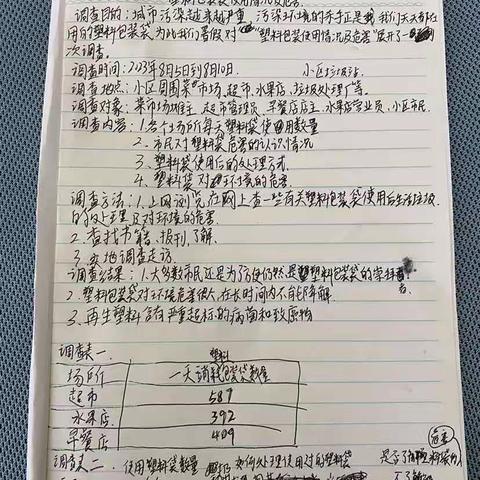 塑料包装袋使用情况及危害.
调查目的:城市污染越来越严重,污染环境的杀手正是我们天天都在
用的塑料包装袋,为此我们暑假对"塑料包装袋使用情况及危害"展开了一
次调查.
调查时间:2023年8月5日到8月10日.
小区垃圾站
调查地点:小区周围菜市场、超市、水果店、垃圾处理厂等.
调查对象:菜市场摊主、超市管理员、早餐店店主、水果店营业员、小区市民
调查内容:1.各个场所每天塑料袋使用数量
2.市民对塑料袋危害的认识情况
3.塑料袋使用后的处理方式.
4.塑料袋对环境的危害.
调查方法:1.上网浏览,在网上查一些有关塑料包装袋使用后生活垃圾
的处理及对环境的危害.
2.查找书籍、报刊,了解.
3.实地调查走访.
调查结果:1.大多数市民还是为了方便仍然是塑料包装袋的
2.塑料包装袋对环境危害很大,在长时间内不能降解.
3.再生塑料含有严重超标的病菌和致癌物
调查表一.
场所 一天消耗塑料包装袋数量
超市 587
水果店 392
早餐店 409
调查表二. 使用塑料袋数量 如何处理使用过的塑料袋 是否了解塑料袋的危害